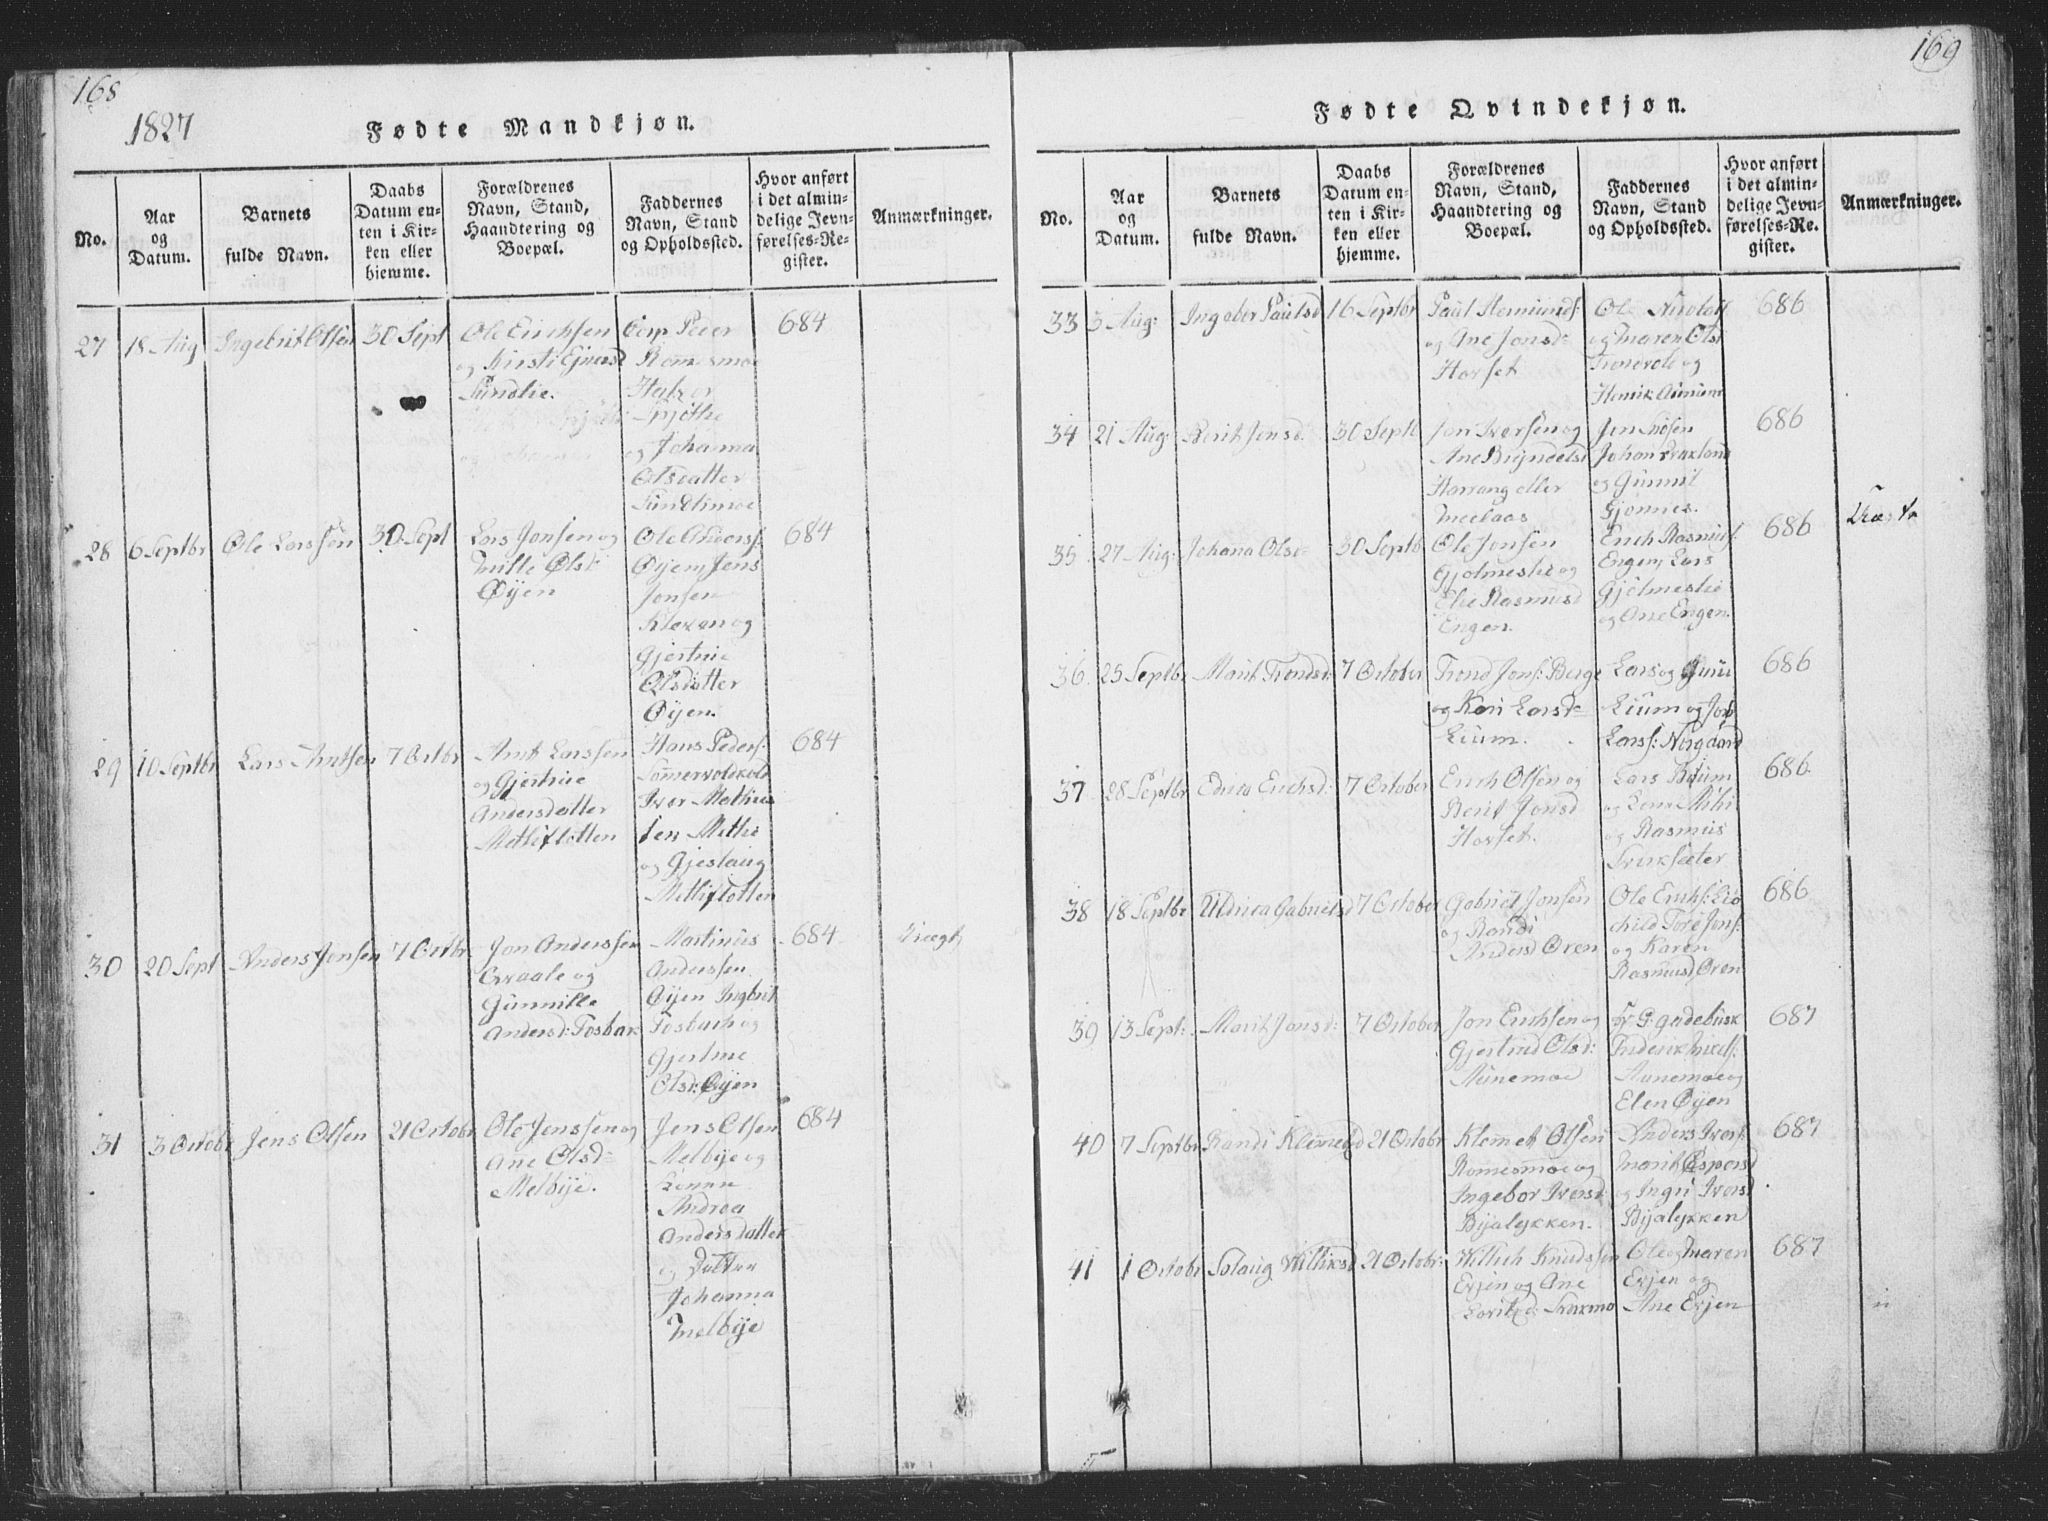 168
1827
Fødte Mandkjøn.
No.
Aar
og
Datum.
Barnets
fulde Navn.
Daabs
Datum en-
ten i Kir-
ken eller
hjemme.
Forældrenes
Navn, Stand,
Haandtering og
Boepæl.
Faddernes
Navn, Stand
og Opholdssted.
Hvor anført
i det almin-
delige Jevn-
førelses-Re-
gister.
Anmærkninger.
27
18 Aug
Ingebrit Olsen
30 Sept
Ole Erichsen
og Kirsti
Sundlie.
Peder
Romesmoe
og Johanna
Olsdatter
Sundlimoe
684
28
6 Septbr
Ole Larssen
30 Sept
Lars Jonsen og
Mille Olsd:
Øyen
Ole Anderss:
Øyen, Jens
Jonsen
og
Gjertrue
Olsdatter
Øyen.
684
29
10 Septbr
Lars Arntsen
7 Octobr
Arnt Larssen
og Gjertrue
Andersdatter
Methistotten
Hans Peders:
Iver Mathias
sen Methi
og Gjeslaug
Methistotten
684
30
20 Sept
Anders Jonsen
7 Octbr
Jon Anderssen
og
Gunnille
Andersd: Fosbak
Martinus
Anderssen
Øyen Ingbrit
Fosbach og
Gjertrue
Olsd: Øyen
684
31
3 Octobr
Jens Olsen
21 Octobr
Ole Jenssen og
Ane Olsd:
Melbye.
Jens Olsen
Melbye og
Andrea
Andersdatter
og
Johanna
Melbye
684
169
Fødte Qvindekjøn.
No.
Aar
og
Datum.
Barnets
fulde Navn.
Daabs
Datum en-
ten i Kir-
ken eller
hjemme.
Forældrenes
Navn, Stand,
Haandtering og
Boepæl.
Faddernes
Navn, Stand
og Opholdssted.
Hvor anført
i det almin-
delige Jevn-
førelses-Re-
gister.
Anmærkninger.
33
3 Aug:
Ingebor Paulsd
16 Septbr
Paul
og Ane Jonsd:
Horset
Ole Nicolai
og Maren Olsd
og
Henrik Aunum
686
34
21 Aug:
Berit Jonsd.
30 Septb
Jon Iversen og
Ane Bryndelsd
Harrang eller
Meelaas
Jon
Johan
og Gunnil
Gjonnes.
686
35
27 Aug:
Johana Olsd
30 Septb
Ole Jonsen
Gjolmeslie og
Else Rasmusd
Engen.
Erich Rasmus:
Engen, Lars
Gjolmeslie
og Ane Engen.
686
36
25 Septbr
Marit Trondsd:
7 October
Trond Jons: Berge
og Kari Larsd:
Lium.
Lars og
Lium og
Larss: Norgaard
686
37
28 Septbr
Erichsd:
7 October
Erich Olsen og
Berit Jonsd
Horset.
Lars
og Lene
og Rasmus
686
38
18 Septbr
Gabrielsd
7 October
Gabriel Jonsen
og Randi
Andersd Oren
Ole Erichs:
Tore Jons:
og Karen
Rasmusd Oren
686
39
13 Sept:
Marit Jonsd:
7 October
Jon Erichsen og
Gjertrud Olsd:
Aunemoe
Fr G: Gadebusk
Aunemoe og
Elen Øyen
687
40
7 Septbr
Randi Klemetsd
21 Octobr
Klemet Olsen
Romesmoe og
Ingebor Iversd:
Byalykken.
Anders Ivers:
Marit Espersd
og Ingri Iversd
Byalykken
687
41
1 Octobr
Solaug Willichsd
21 Octobr:
Willich Knudssen
Evjen og Ane
Ole og Maren
Evjen og
Ane Evjen
687